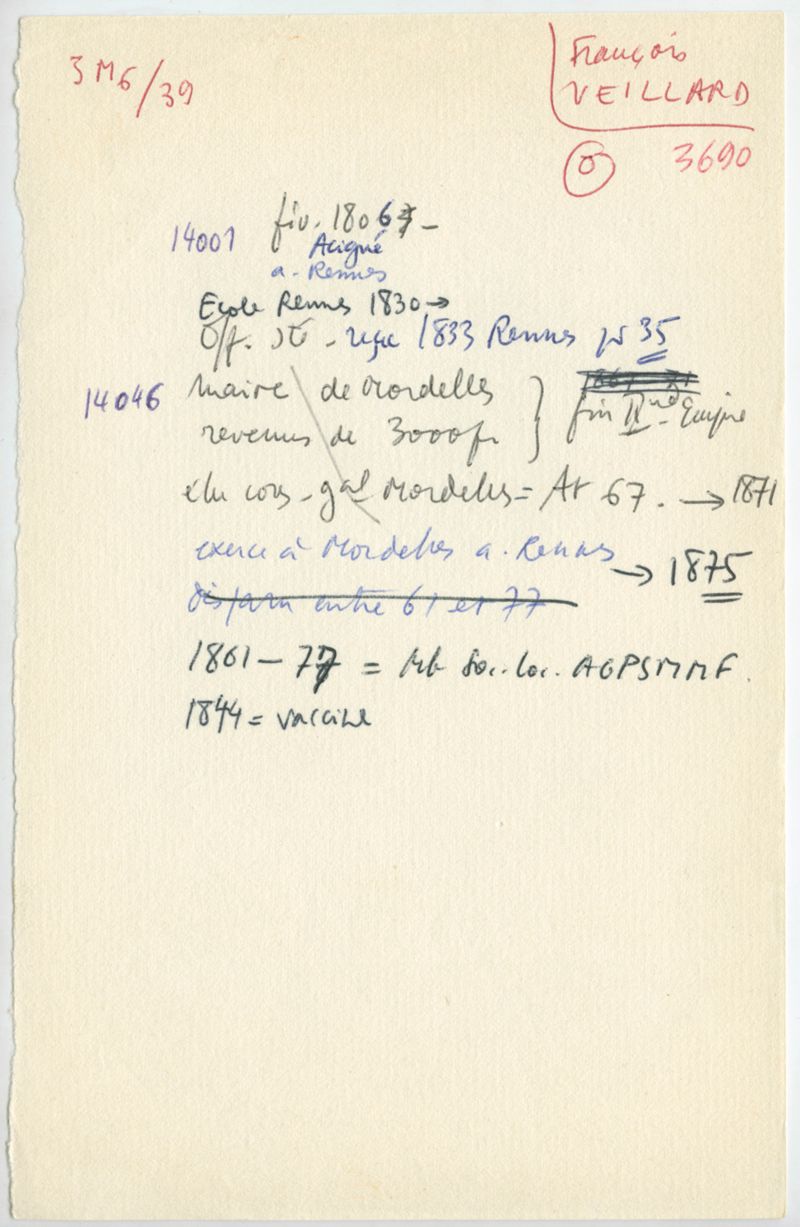 3 M6/39
François
VEILLARD
3690
14001 fév. 1806 -
Acigné
a. Rennes
Ecole Rennes 1830 →
Off. Sté - reçu 1833 Rennes pr 35
14046 Maire de Mordelles
revenus de 3000 fr } fin IInd Empire
élu cons. gal Mordelles = At 67. → 1871
exerce à Mordelles a. Rennes → 1875
disparu entre 61 et 77
1861 - 77 = Mb Soc. loc. AGPSMMF.
1844 = vaccine